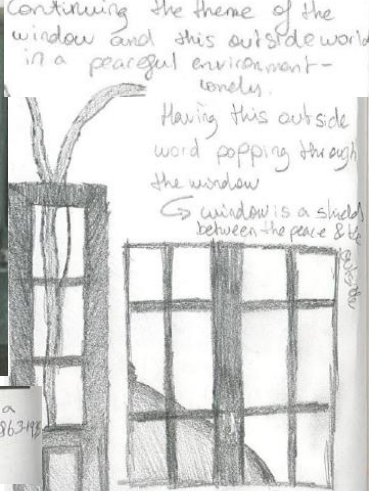 Continuing the theme of the
window and this outside world
in a peaceful environment -
lonely.
Having this outside
word popping through
the window
↳ window is a shield
between the peace & the
outside
a